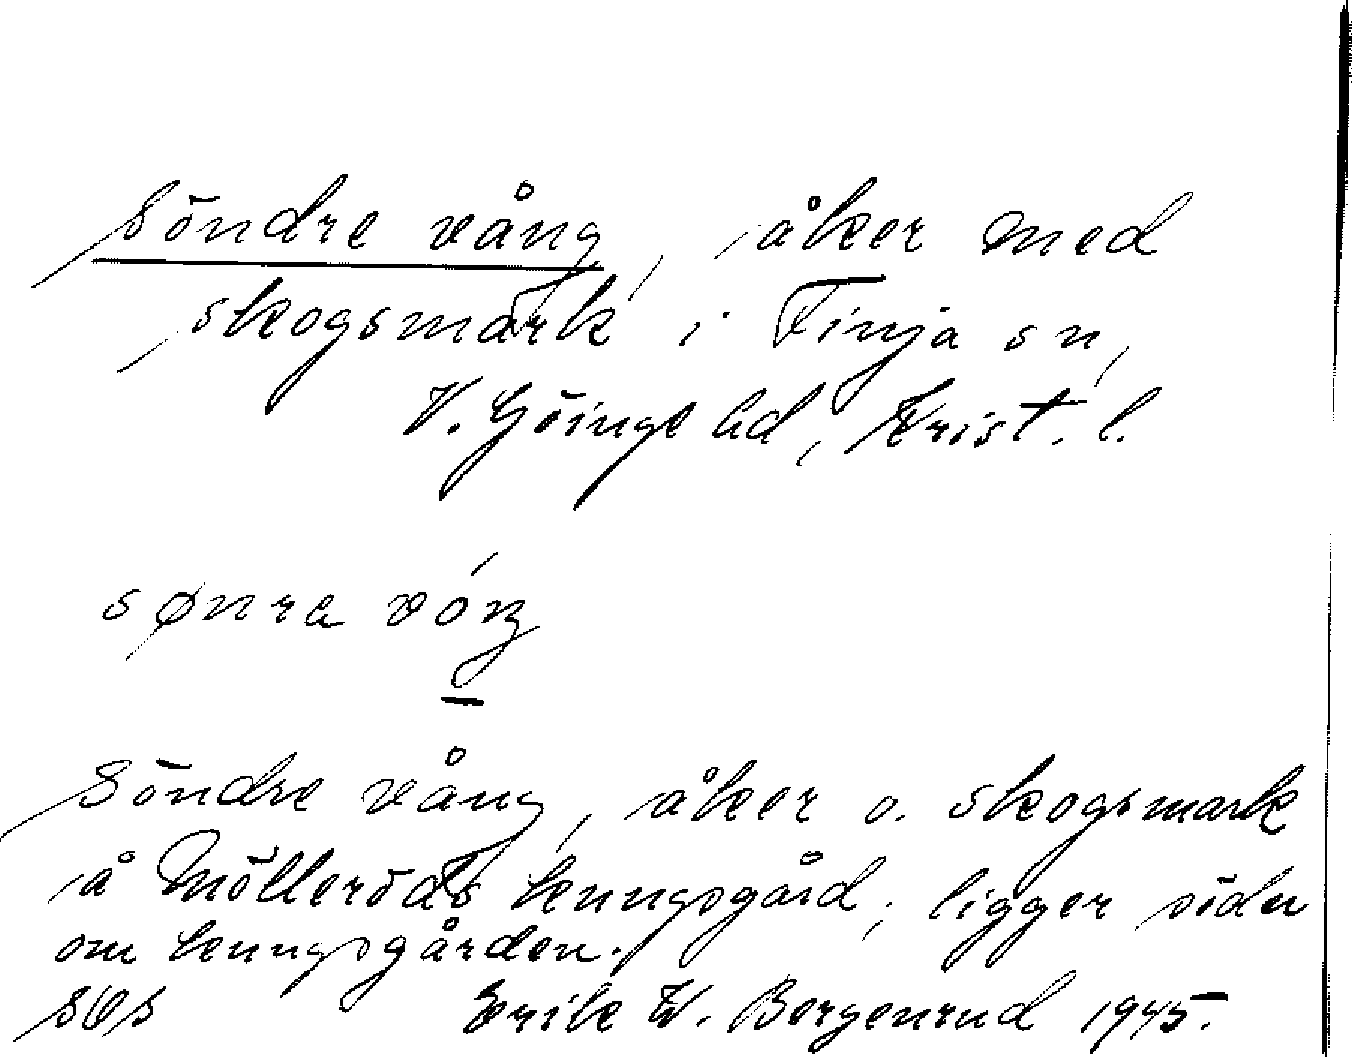 Söndre vång, åker med
skogsmark i Finja sn,
V. Göinge hd, Krist. l.
sønra vóŋ
Söndre vång, åker o. skogsmark
å Mölleröds kungsgård; ligger söder
om kungsgården.
Erik W. Bergenrud 1945.